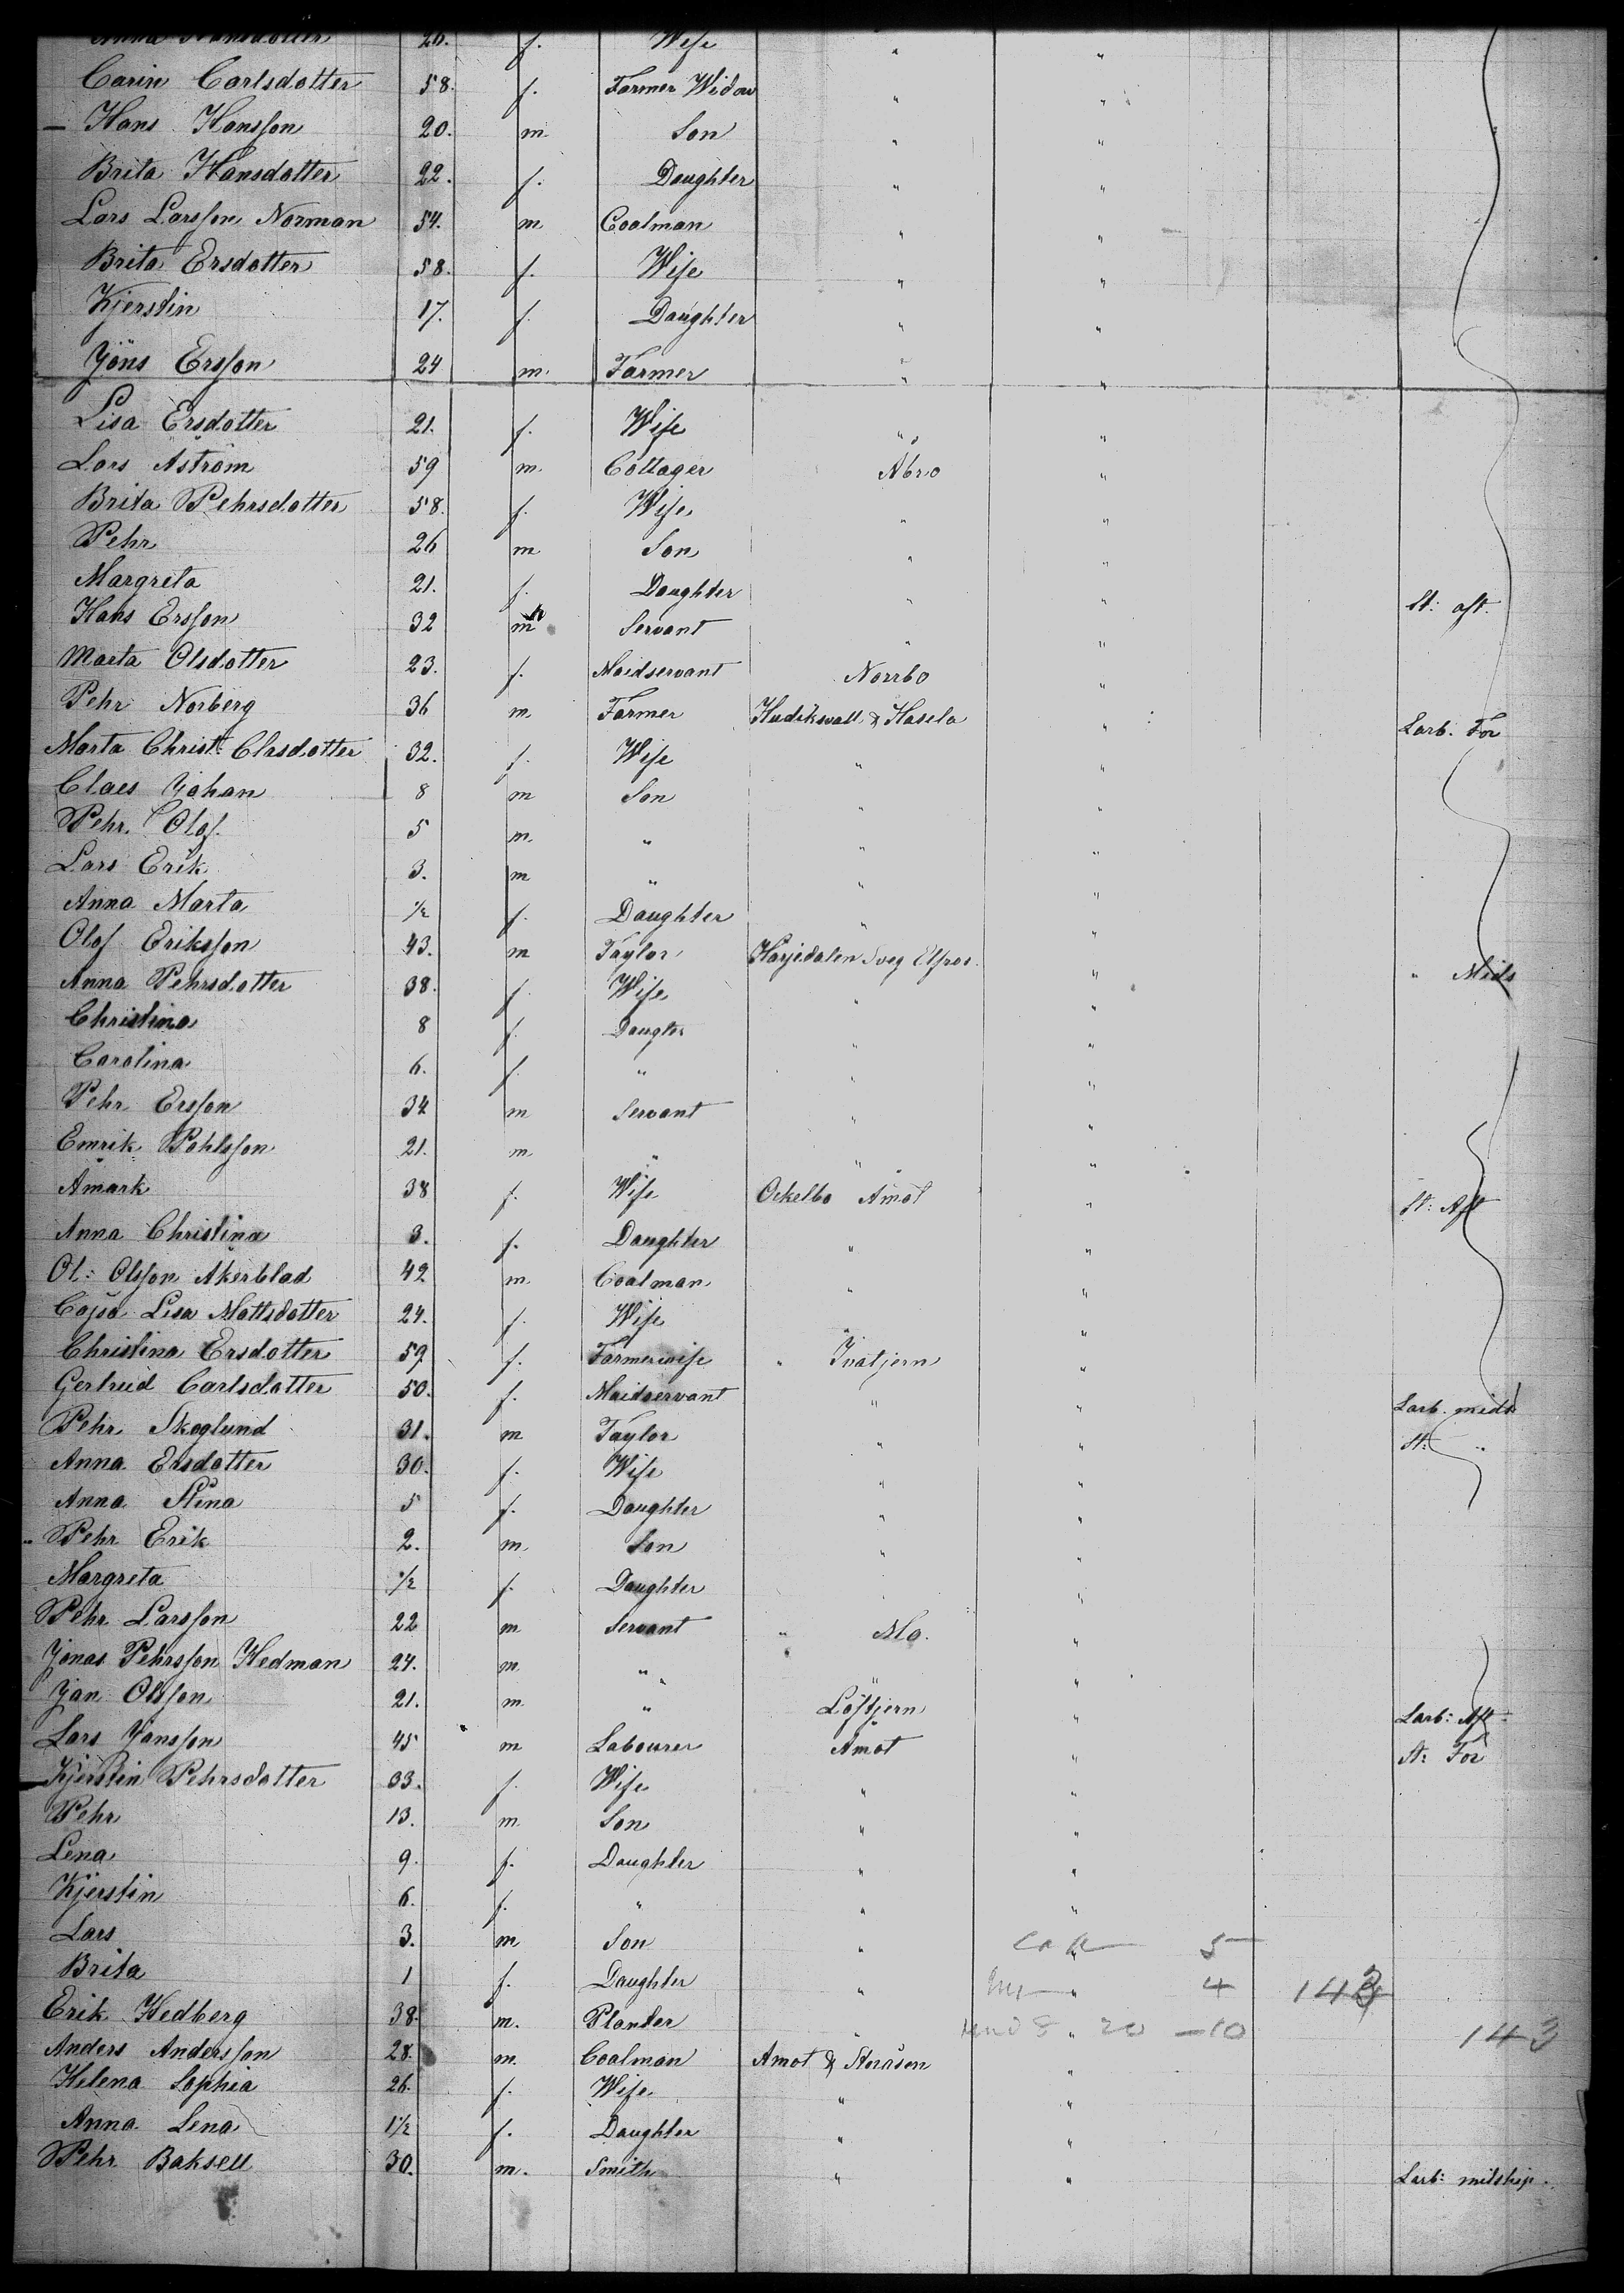 Anna Hansdotter 26. f. Wife " "
Carin Carlsdotter 58. f. Farmer Widow " "
Hans Hansson 20. m. Son " "
Brita Hansdotter 22. f. Daughter " "
Lars Larsson Norman 54. m. Coalman " "
Brita Ersdotter 58. f. Wife " "
Kjerstin 17. f. Daughter " "
Jöns Ersson 24 m. Farmer " "
Lisa Ersdotter 21. f. Wife " "
Lars Aström 59 m. Cottager Åbro "
Brita Pehrsdotter 58. f. Wife " "
Pehr 26 m Son " "
Margreta 21. f. Daughter " " St: aft.
Hans Ersson 32 m Servant " "
Marta Olsdotter 23. f. Maidservant Norrbo "
Pehr Norberg 36 m. Farmer Hudikswall & Hasela " Larb. For
Marta Christ: Clasdotter 32. f. Wife " "
Claes Johan 8 m Son " "
Pehr Olof 5 m. " " "
Lars Erik 3. m " " "
Anna Marta 1/2 f. Daughter " "
Olof Eriksson 43. m Taylor Harjedalen Sveg Elfros. " " Mids
Anna Pehrsdotter 38. f. Wife " "
Christina 8 f. Daugter " "
Carolina 6. f. " " "
Pehr Ersson 34 m Servant " "
Emrik Pohlsson 21. m. " " "
Åmark 38 f. Wife Ockelbo Åmot " St: Aft
Anna Christina 3. f. Daughter " "
Ol: Olsson Åkerblad 42 m. Coalman " "
Cajsa Lisa Mattsdotter 24. f. Wife " "
Christina Ersdotter 59 f. Farmerwife " Ivatjern "
Gertrud Carlsdotter 50. f. Maidservant " " Larb. mids
Pehr Skoglund 31. m Taylor " " St: "
Anna Ersdotter 30. f. Wife " "
Anna Stina 5 f. Daughter " "
Pehr Erik 2. m. Son " "
Margreta 1/2 f. Daughter " "
Pehr Larsson 22 m Servant " Mo. "
Jonas Pehrsson Hedman 24. m " " "
Jan Olsson 21. m. " Löftjern " Larb: Aft
Lars Jansson 45 m Labourer Åmot " St: For
Kjerstin Pehrsdotter 33. f. Wife " "
Pehr 13. m. Son " "
Lena 9. f. Daughter " "
Kjerstin 6. f. " " "
Lars 3. m Son " " 5
Brita 1 f. Daughter " " 4 143
Erik Hedberg 38. m. Planter " und 8 " 20 — 10 143
Anders Andersson 28. m. Coalman Amot & "
Helena Sophia 26. f. Wife " "
Anna Lena 1 1/2 f. Daughter " "
Pehr Baksell 30. m. Smith " " Larb: midship.